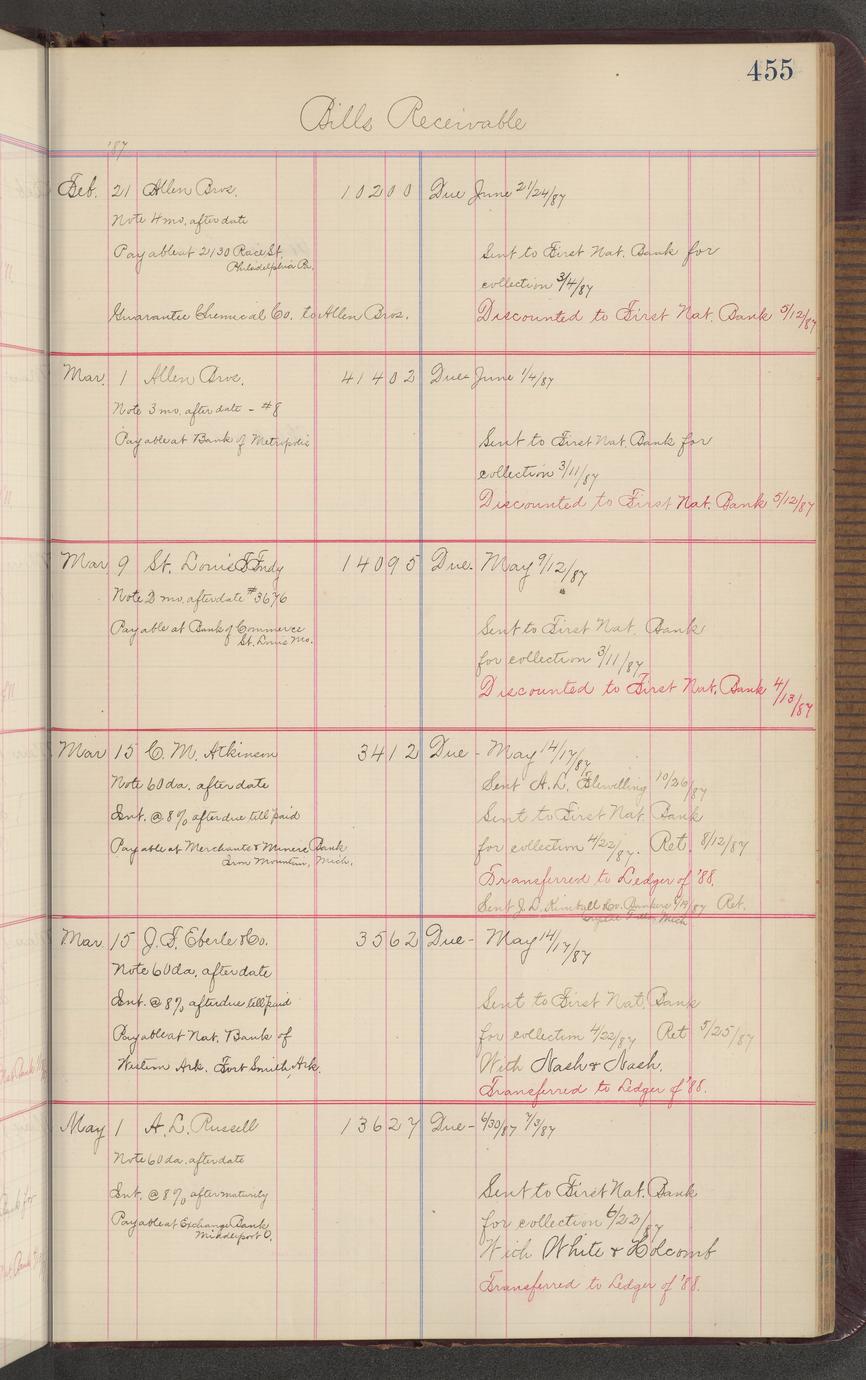 455
Bills Receivable
'87
Feb. 21 Allen Bros. 10200 Due June 21/24/87
Note 4 mo. after date
Payable at 2130 Race St. Sent to First Nat. Bank for
Philadelphia Pa.
collection 3/4/87
Guarantee Chemical Co. to Allen Bros. Discounted to First Nat. Bank 5/12/87
Mar. 1 Allen Bros. 41402 Due June 1/4/87
Note 3 mo. after date - #8
Payable at Bank of Metropolis Sent to First Nat. Bank for
collection 3/11/87
Discounted to First Nat. Bank 5/12/87
Mar 9 St. Louis T. Fndy 14095 Due. May 9/12/87
Note 2 mo. after date #3676
Payable at Bank of Commerce Sent to First Nat. Bank
St. Louis Mo.
for collection 3/11/87
Discounted to First Nat. Bank 4/13/87
Mar 15 C. M. Atkinson 3412 Due - May 14/17/87
Note 60 da. after date Sent A. L. 10/26/87
Int. @ 8% after due till paid Sent to First Nat. Bank
Payable at Merchants & Miners Bank for collection 4/22/87. Ret. 8/12/87
Iron Mountain, Mich.
Transferred to Ledger of '88.
Sent J. D. Kimball & Co. Bankers /87 Ret.
Crystal Falls Mich
Mar 15 J. F. Eberle & Co. 3562 Due - May 14/17/87
Note 60 da. after date
Int. @ 8% after due till paid Sent to First Nat. Bank
Payable at Nat. Bank of for collection 4/22/87 Ret 5/25/87
Western Ark. Fort Smith, Ark. With Nash & Nash.
Transferred to Ledger of '88.
May 1 A. L. Russell 13627 Due - 6/30/87 7/3/87
Note 60 da. after date
Int. @ 8% after maturity Sent to First Nat. Bank
Payable at Exchange Bank for collection 6/22/87
Middleport O.
With White & Holcomb
Transferred to Ledger of '88.